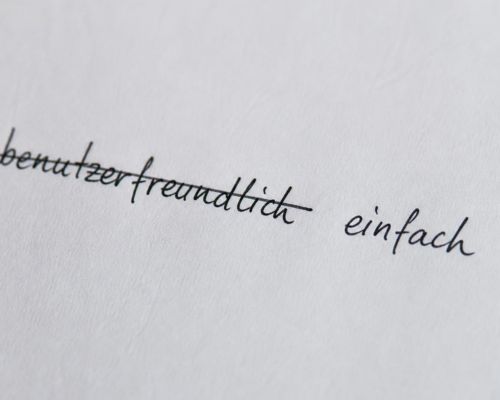 benutzerfreundlich einfach